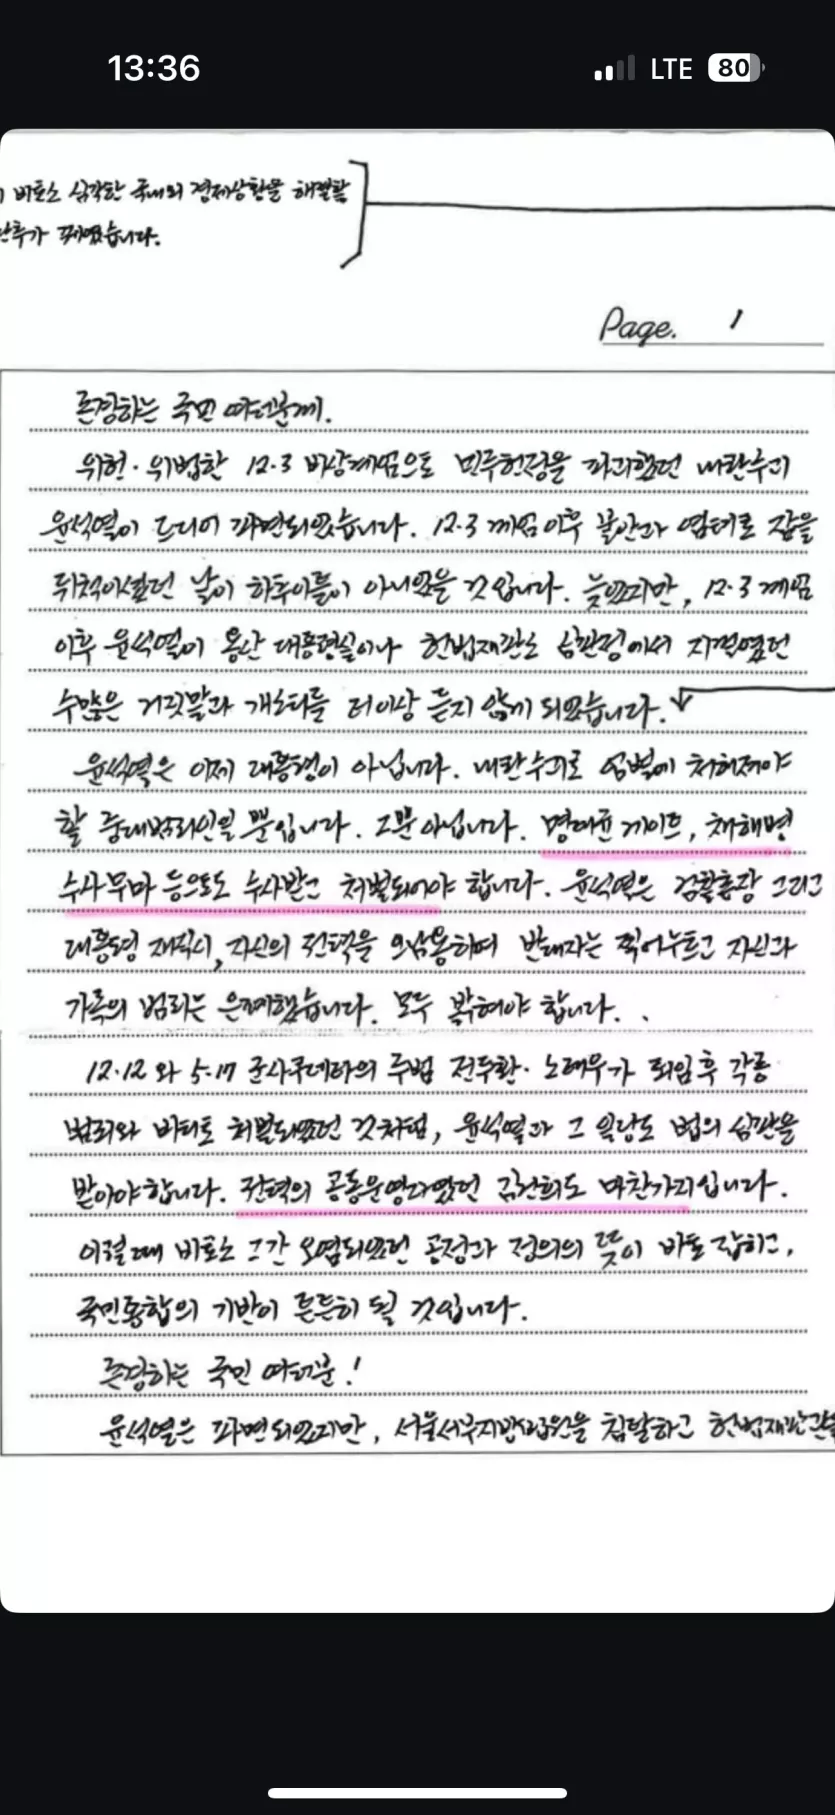 13:36
LTE 80
비로소 심각한 국내의 경제상황을 해결할
단추가 꿰였습니다.
Page. 1
존경하는 국민 여러분께.
위헌·위법한 12.3 비상계엄으로 민주헌정을 파괴했던 내란수괴
윤석열이 드디어 파면되었습니다. 12.3 계엄 이후 불안과 염려로 잠을
뒤척이셨던 날이 하루이틀이 아니었을 것입니다. 늦었지만, 12.3 계엄
이후 윤석열이 용산 대통령실이나 헌법재판소 심판정에서 지껄였던
수많은 거짓말과 개소리를 더이상 듣지 않게 되었습니다.
윤석열은 이제 대통령이 아닙니다. 내란수괴로 엄벌에 처해져야
할 중대범죄인일 뿐입니다. 그뿐 아닙니다. 명태균 게이트, 채해병
수사무마 등으로도 수사받고 처벌되어야 합니다. 윤석열은 검찰총장 그리고
대통령 재직시, 자신의 권력을 오남용하며 반대자는 찍어누르고 자신과
가족의 범죄는 은폐했습니다. 모두 밝혀야 합니다.
12.12와 5.17 군사쿠데타의 주범 전두환·노태우가 퇴임 후 각종
범죄와 비리로 처벌되었던 것처럼, 윤석열과 그 일당도 법의 심판을
받아야 합니다. 권력의 공동운영자였던 김건희도 마찬가지입니다.
이럴 때 비로소 그간 오염되었던 공정과 정의의 뜻이 바로 잡히고,
국민통합의 기반이 튼튼히 될 것입니다.
존경하는 국민 여러분!
윤석열은 파면되었지만, 서울서부지방법원을 침탈하고 헌법재판관을